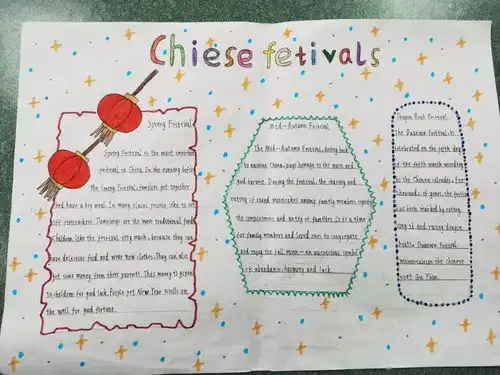 Chiese fetivals
Spring Festival
Spring Festival is the most important
festival in China. In the evening before
the Spring Festival, families get together
and have a big meal. In many places people like to set
off firecrackers. Dumplings are the most traditional food.
Children like the festival very much, because they can
have delicious food and wear new clothes. They can also
get some money from their parents. This money is given
to children for good luck. People put New Year scrolls on
the wall for good fortune.
Mid-Autumn Festival
The Mid-Autumn Festival, dating back
to ancient China, pays homage to the moon and
good harvest. During the festival, the sharing and
eating of round mooncakes among family members signify
the completeness and unity of families. It is a time
for family members and loved ones to congregate
and enjoy the full moon-an auspicious symbol
of abundance, harmony and luck.
Dragon Boat Festival
The Duanwu Festival is
celebrated on the fifth day
of the fifth month according
to the Chinese calendar. For
thousands of years, the festival
has been marked by eating
zong zi and racing dragon
boats. Duanwu Festival
memorializes the chinese
poet Qu Yuan.